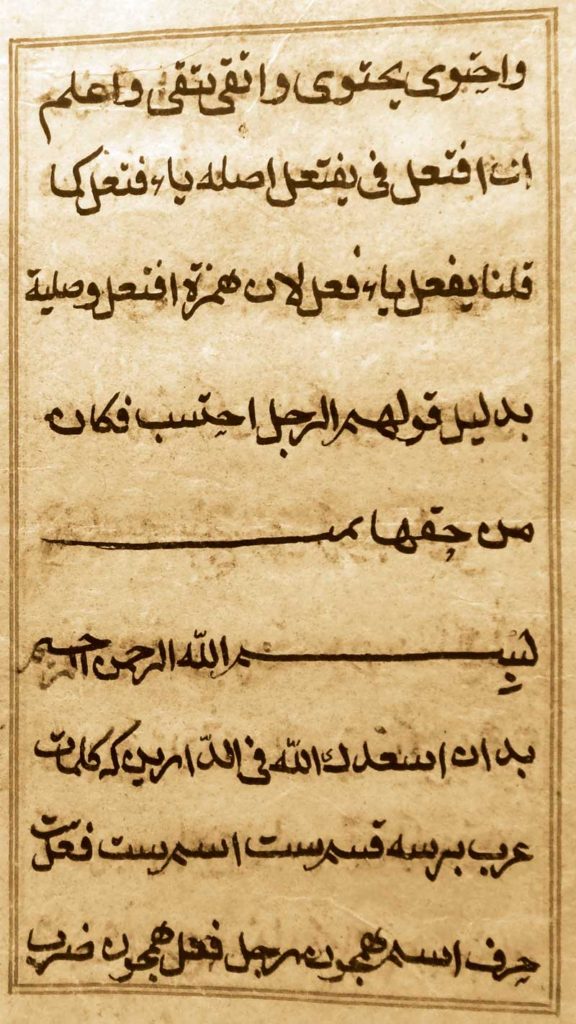 واحتوى يحتوى واتقى يتقى واعلم
ان افتعل فى يفتعل اصله ياء فتعل كما
قلنا يفعل ياء فعل لان همزة افتعل وصلية
بدليل قولهم الرجل احتسب فكان
من حقها تمت
بسم الله الرحمن الرحيم
بدان اسعدك الله فى الدارين كه كلمات
عرب برسه قسم ست اسم ست فعل ست
حرف اسم همچون رجل فعل همچون ضرب